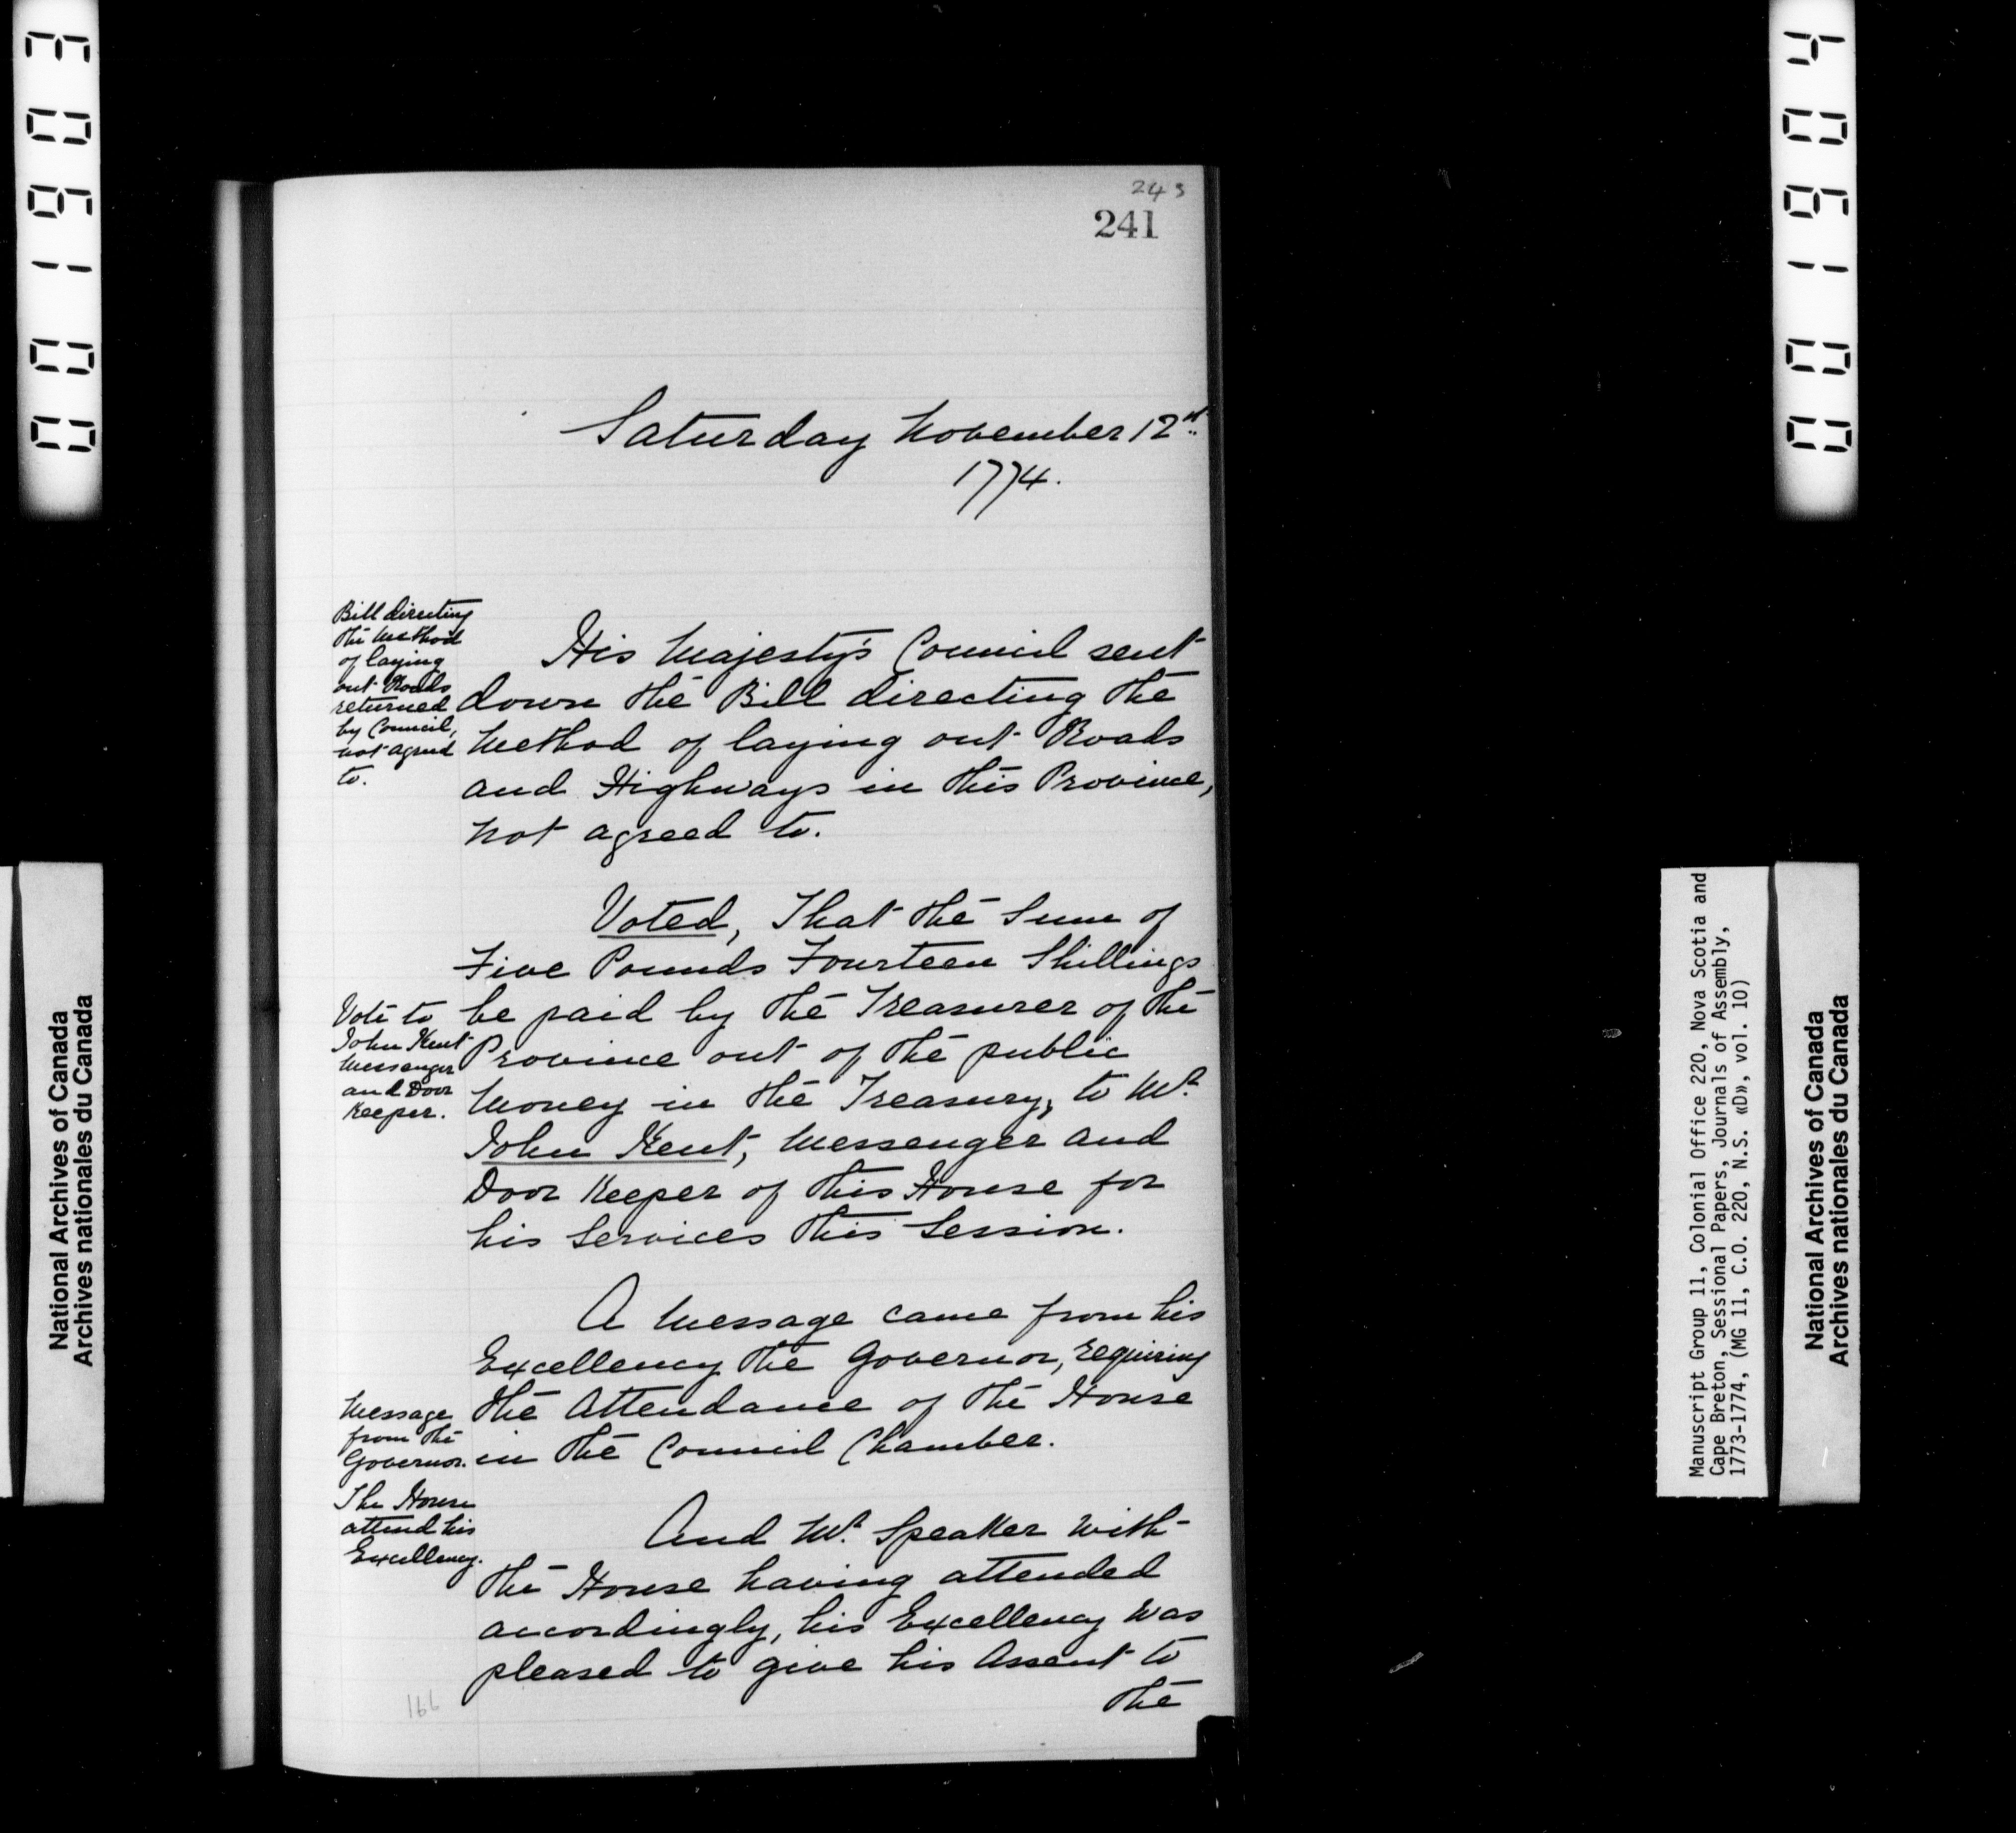 001903
001904
243
241
Saturday November 12th
1774.
Bill directing
the Method
of laying
out Roads
returned
by Council,
not agreed
to.
His Majesty's Council sent
down the Bill directing the
Method of laying out Roads
and Highways in this Province,
not agreed to.
Voted, That the Sum of
Five Pounds Fourteen Shillings
be paid by the Treasurer of the
Province out of the public
Money in the Treasury, to Mr.
John Kent, Messenger and
Door Keeper of this House for
his Services this Session.
Vote to
John Kent
Messenger
and Door
Keeper.
A Message came from his
Excellency the Governor, requiring
the Attendance of the House
in the Council Chamber.
Message
from the
Governor.
The House
attend his
Excellency.
And Mr. Speaker with
the House having attended
accordingly, his Excellency was
pleased to give his Assent to
the
166
National Archives of Canada
Archives nationales du Canada
Manuscript Group 11, Colonial Office 220, Nova Scotia and
Cape Breton, Sessional Papers, Journals of Assembly,
1773-1774, (MG 11, C.O. 220, N.S. «D», vol. 10)
National Archives of Canada
Archives nationales du Canada